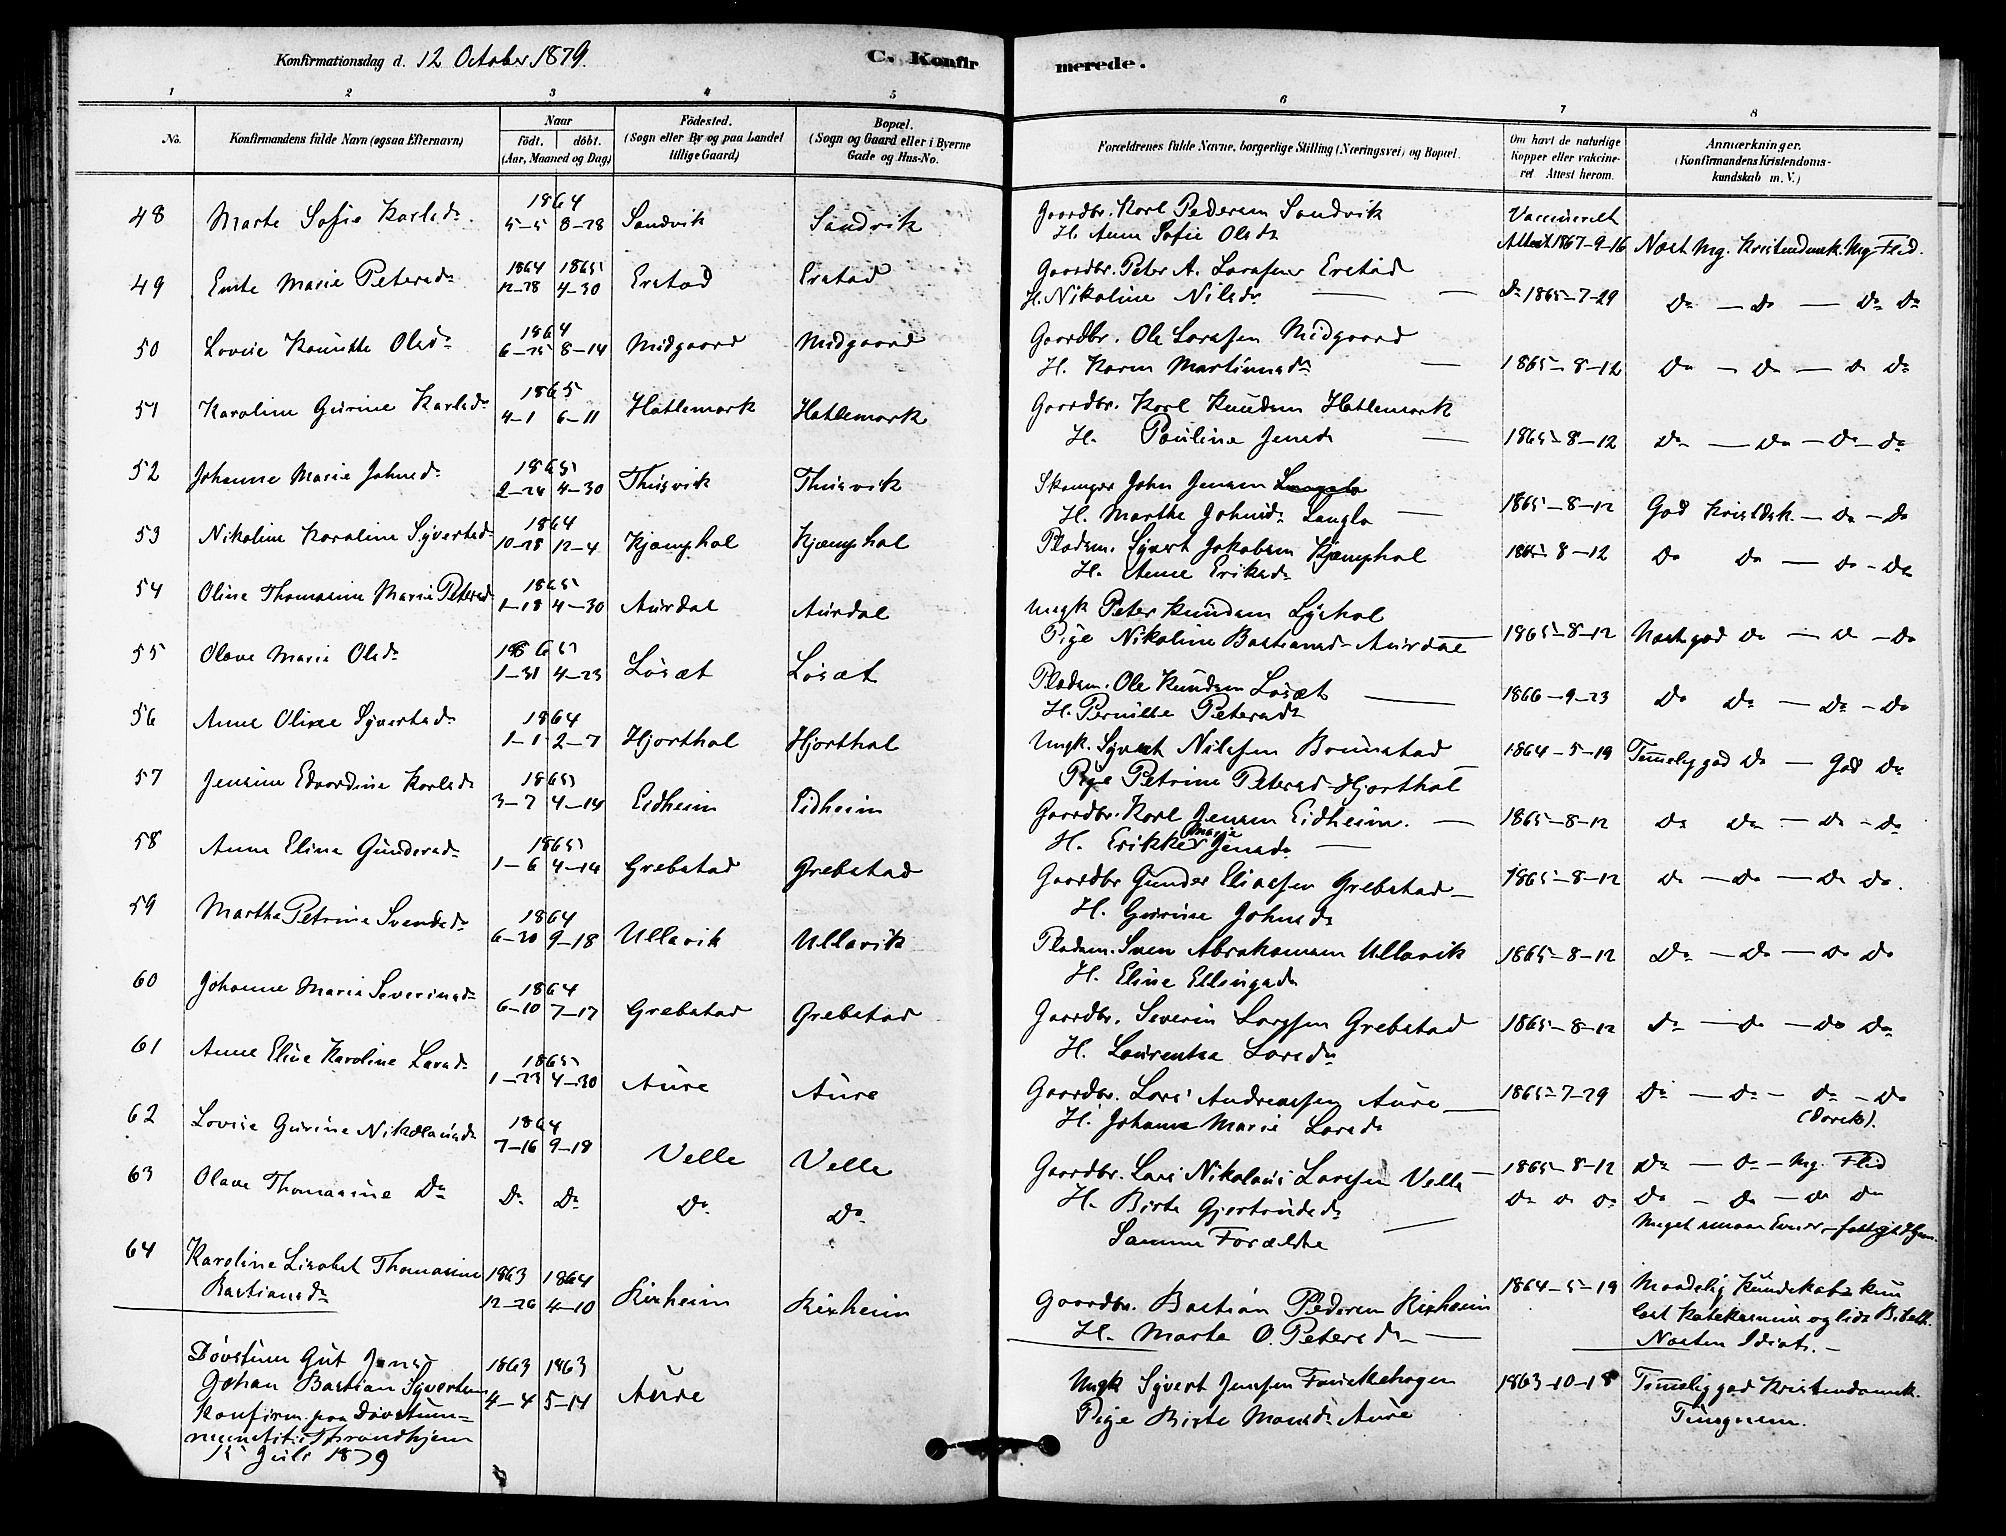 Konfirmationsdag d. 12 October 1879.
C. Konfirmerede.
1 2 3 4 5 6 7 8
No.
Konfirmandens fulde Navn (ogsaa Efternavn)
Naar
født. døbt.
(Aar, Maaned og Dag)
Fødested.
(Sogn eller By og paa Landet
tillige Gaard)
Bopæl.
(Sogn og Gaard eller i Byerne
Gade og Hus-No.
Forældrenes fulde Navne, borgerlige Stilling (Næringsvei) og Bopæl.
Om havt de naturlige
Kopper eller vakcine-
ret Attest herom.
Anmærkninger.
(Konfirmandens Kristendoms-
kundskab m. V.)
48 Marte Sofie Karlsdr 1864 5-5 8-28 Sandvik Sandvik
Gaardbr. Karl Pedersen Sandvik
H. Anne Sofie Olsdr
Vaccineret
Attest 1867-9-16 Næst Mg. Kristendomsk. Mg. Flid.
49 Marie Petersdr 1864 12-28 1865 4-30 Erstad Erstad
Gaardbr. Peter A. Larssen Erstad
H. Nikoline Nilsdr — Do 1865-7-29 Do — Do — Do Do
50 Lovise Olsdr 1864 6-25 8-14 Midgaard Midgaard
Gaardbr. Ole Larssen Midgaard
H. Karen Martinusdr — 1865-8-12 Do — Do — Do Do
51 Karoline Gurine Karlsdr 1865 4-1 6-11 Hatlemark Hatlemark
Gaardbr. Karl Knudsen Hatlemark
H. Pauline Jensdr — 1865-8-12 Do — Do — Do — Do
52 Johanne Marie Johnsdr 1865 2-24 4-30 Thusvik Thusvik
John Jensen Langlo
H. Marthe Johnsdr Langlo — 1865-8-12 God Kristdsk. — Do — Do
53 Nikoline Karoline Syvertsdr 1864 10-28 12-4 Kjæmphol Kjæmphol
Pladsm. Syvert Jakobsen Kjæmphol
H. Anne Eriksdr 1865-8-12 Do Do — Do — Do
54 Oline Thomasine Marie Petersdr 1865 1-18 4-30 Aurdal Aurdal
Ungk. Peter Knudsen Lyshol
Pige Nikoline Bastiansdr Aurdal 1865-8-12 Næst god Do — Do — Do
55 Olave Marie Olsdr 1865 1-31 4-23 Løsæt Løsæt
Pladsm. Ole Knudsen Løsæt —
H. Pernille Petersdr 1866-9-23 Do Do — Do — Do
56 Anne Oline Syvertsdr 1864 1-1 2-7 Hjorthol Hjorthol
Ungk. Syvert Nilssen Brunstad
Pige Petrine Petersdr Hjorthol 1864-5-19 Temmelig god Do — God Do
57 Jensine Edvardine Karlsdr 1865 3-7 4-14 Eidheim Eidheim
Gaardbr. Karl Jensen Eidheim. —
H. Erikke Marie Jensdr — 1865-8-12 Do Do — Do — Do
58 Anne Elina Gundersdr 1865 1-6 4-14 Grebstad Grebstad
Gaardbr Gunder Eliassen Grebstad —
H. Gurine Johnsdr 1865-8-12 Do — Do — Do Do.
59 Marthe Petrine Svendsdr 1864 6-20 9-18 Ullavik Ullavik
Pladsm. Sven Abrahamsen Ullavik
H. Eline Ellingsdr 1865-8-12 Do — Do — Do Do
60 Johanne Marie Severinsdr 1864 6-10 7-17 Grebstad Grebstad
Gaardbr. Severin Larssen Grebstad
H. Laurentse Larsdr 1865-8-12 Do — Do — Do Do
61 Anne Elise Karoline Larsdr 1865 1-23 4-30 Aure Aure
Gaardbr. Lars Andreassen Aure —
H. Johanne Marie Larsdr 1865-7-29 Do — Do — Do — Do
62 Lovise Gurine Nikolausdr 1864 7-16 9-18 Velle Velle
Gaardbr. Lars Nikolaus Larssen Velle —
H. Birte Gjertrudsdr 1865-8-12 Do — Do — Mg. Flid
63 Olave Thomasine Do Do Do Do Do
Samme Forældre Do Do Do Do — Do — Do Do
64 Karoline Lisabet Thomasine
Bastiansdr 1863 12-26 1864 4-10 Rixheim Rixheim
Gaardbr. Bastian Pedersen Rixheim
H. Marte O. Petersdr — 1864-5-19
Meget smaa Evner
Maadelig Kundskab kun
læst Katekismus og lidt Bibelh.
Næsten Idiot. —
Døvstum Gut Jens
Johan Bastian Syvertsen 1863 4-4 1863 5-14 Aure
Konfirm. paa Døvstum-
meinstit. i Throndhjem
15 Juli 1879
Ungk Syvert Jenssen
Pige Birte Monsdr Aure 1863-10-18 Temmelig god Kristendomsk.